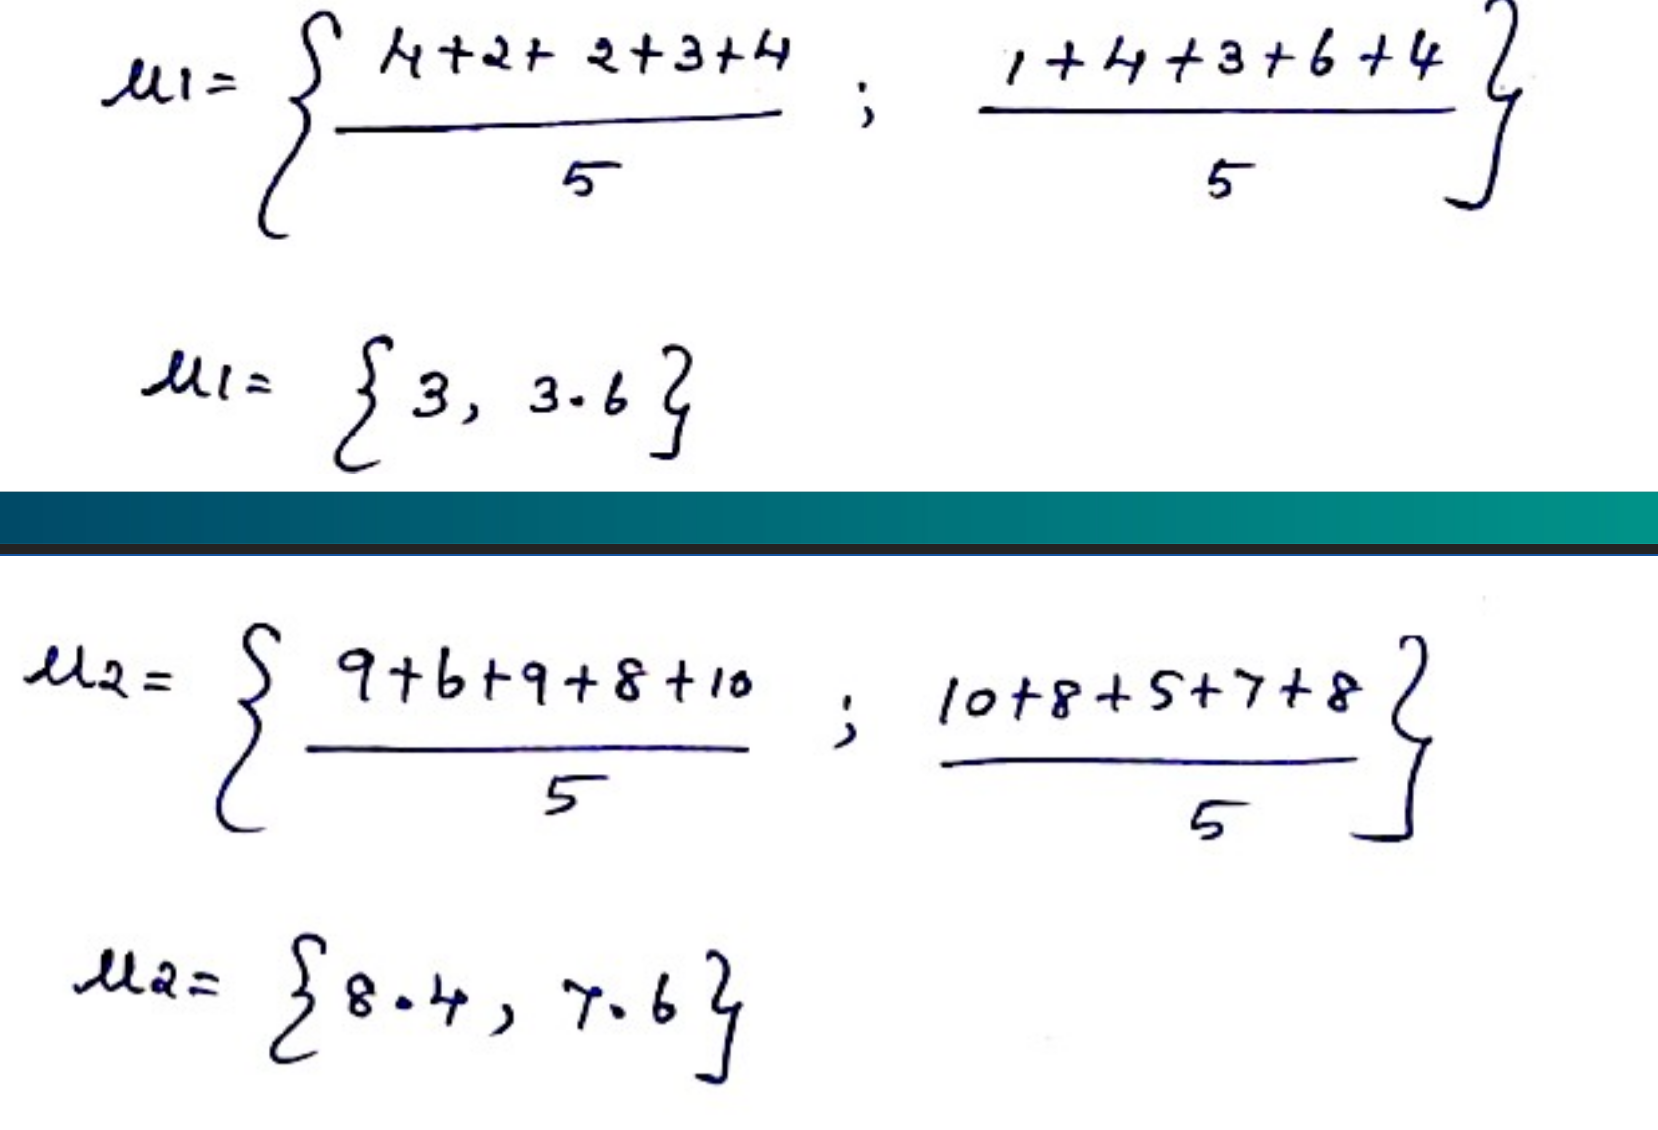 μ1= { 4+2+2+3+4 / 5 ; 1+4+3+6+4 / 5 }
μ1= { 3, 3.6 }
μ2= { 9+6+9+8+10 / 5 ; 10+8+5+7+8 / 5 }
μ2= { 8.4, 7.6 }